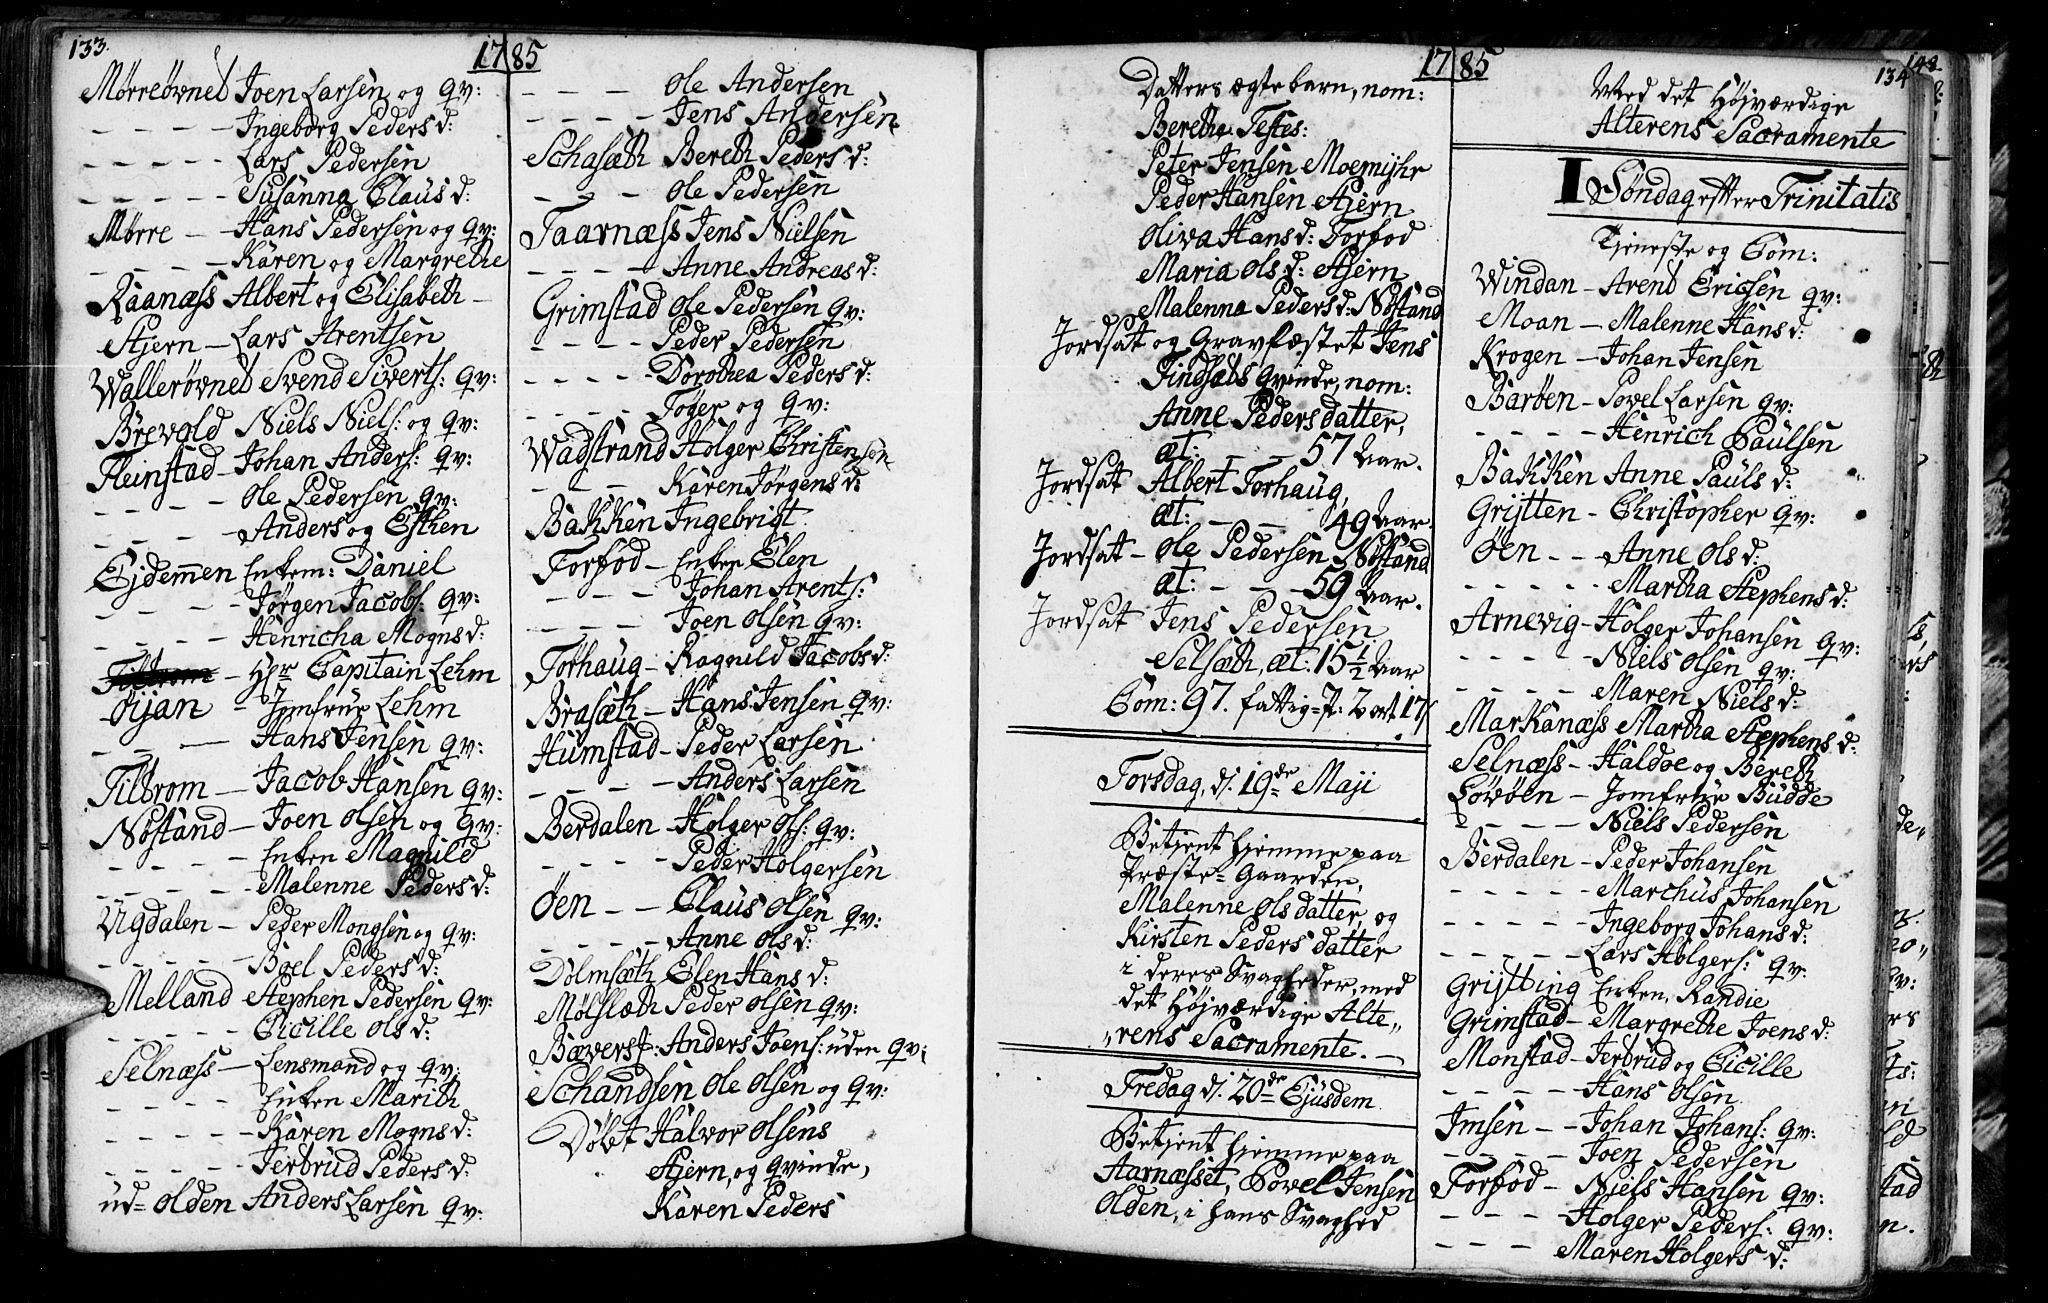 133.
1785
Mørreøvned Joen Larsen og qv:
- - - - Ingeborg Peders d:
- - - - Lars Pedersen
- - - - Susanna Claus d:
Mørre - Hans Pedersen og qv:
- - - - Karen og Margrethe
Raanæss Albert og Elisabeth -
Stjern - Lars Arentsen
Wallerøvned Svend Siverts: qv:
Brevold Niels Niels: og qv:
Fleinstad - Johan Anders: qv:
- - - - Ole Pedersen qv:
- - - - Anders og Esthen
Ejdemmen Enkem: Daniel
- - - - Jørgen Jacobs: qv:
- - - - Henricha Mogns d:
- Hr Capitain Lehm
Øijan - Jomfrue Lehm
- - - Hans Jensen qv:
Tiltrom - Jacob Hansen qv:
Nøstand - Joen Olsen og qv:
- - - - Enken Magnild
- - - - Malenne Peders d:
Ugdalen - Peder Mongsen og qv:
- - - - Boel Peders d:
Melland Stephen Pedersen qv:
- - - - Cicille Ols d:
Selnæss - Lensmand og qv:
- - - - Enken Marith
- - - - Karen Mogns d:
- - - - Jertrud Peders d:
ud= Olden Anders Larsen qv:
- - - - Ole Andersen
- - - - Jens Andersen
Schasæth Bereth Peders d:
- - - Ole Pedersen
Taarnæss Jens Nielsen
- - - - Anne Andreas d:
Grimstad Ole Pedersen qv:
- - - - Peder Pedersen
- - - - Dorothea Peders d:
- - - - Tøger og qv:
Wadstrand Holger Christensen
- - - Karen Jørgens d:
Bakken Ingebrigt
Forfod - Enken Elen
- - - - Johan Arents:
- - - - Joen Olsen qv:
Forhaug - Ragnild Jacobs d:
Brasæth - Hans Jensen qv:
Humstad - Peder Larsen
- - - - Anders Larsen
Berdalen - Holger Ols: qv:
- - - - Peder Holgersen
Øen - - Claus Olsen qv:
- - - - Anne Ols d:
Dolmsæth Elen Hans d:
Mølslæth Peder Olsen qv:
Bæverf: Anders Joens: uden qv:
Schandsen Ole Olsen og qv:
Døbt Halvor Olsens
Stjern, og qvinde,
Karen Peders
1785
Datters ægte barn, nom:
Beretha. Testes:
Peter Jensen Moemyhr
Peder Hansen Stjern
Oliva Hans d: Forfod
Maria Ols d: Stjern
Malenna Peders d: Nøstand
Jordsat og Gravfæstet Jens
Findsæts qvinde, nom:
Anne Pedersdatter,
æt: - - 57 Aar.
Jordsat Albert Forhaug,
æt: - - 49 Aar.
Jordsat - Ole Pedersen Nøstand
æt: - - 59 Aar.
Jordsat Jens Pedersen
Selsæth, æt: 15 1/2 Aar
Com: 97. fattig=P: 2 ort 17 s
Torsdag, d: 19de Maji
Betjent hjemme paa
Præste=Gaarden,
Malenne Olsdatter, og
Kirsten Peders datter
i deres Svagheder, med
det Højværdige Alte„
„rens Sacramente. -
Fredag d: 20de Ejusdem
Betjent hjemme paa
Aarnæsset, Povel Jensen
Olden, i hans Svaghed
134
Med det Højværdige
Alterens Sacramente
I Søndag efter Trinitatis
Tjeneste og Com:
Windan - Arend Ericsen qv:
Moan - Malenne Hans d:
Krogen - Johan Jensen
Barøen - Povel Larsen qv:
- - - - Henrich Paulsen
Bakken Anne Pauls d:
Grijtten - Christopher qv:
Øen - - Anne Ols d:
- - - - Martha Stephens d:
Arnevig - Holger Johansen qv:
- - - - Niels Olsen qv:
- - - - Maren Niels d:
Markanæss Martha Stephens d:
Selnæss - Haldoe og Bereth
Løvøen - Jomfrue Budde
- - - - Niels Pedersen
Berdalen - Peder Johansen
- - - - Marchus Johansen
- - - - Ingeborg Johans d:
- - - - Lars Holgers: qv:
Grijtting Enken, Randie
Grimstad - Margrethe Joens d:
Monstad - Jertrud og Cicille
- - - - Hans Olsen
Imsen - - Johan Johans: qv:
- - - - Joen Pedersen
Forfod - Niels Hansen qv:
- - - - Holger Peders: qv:
- - - Maren Holgers d: